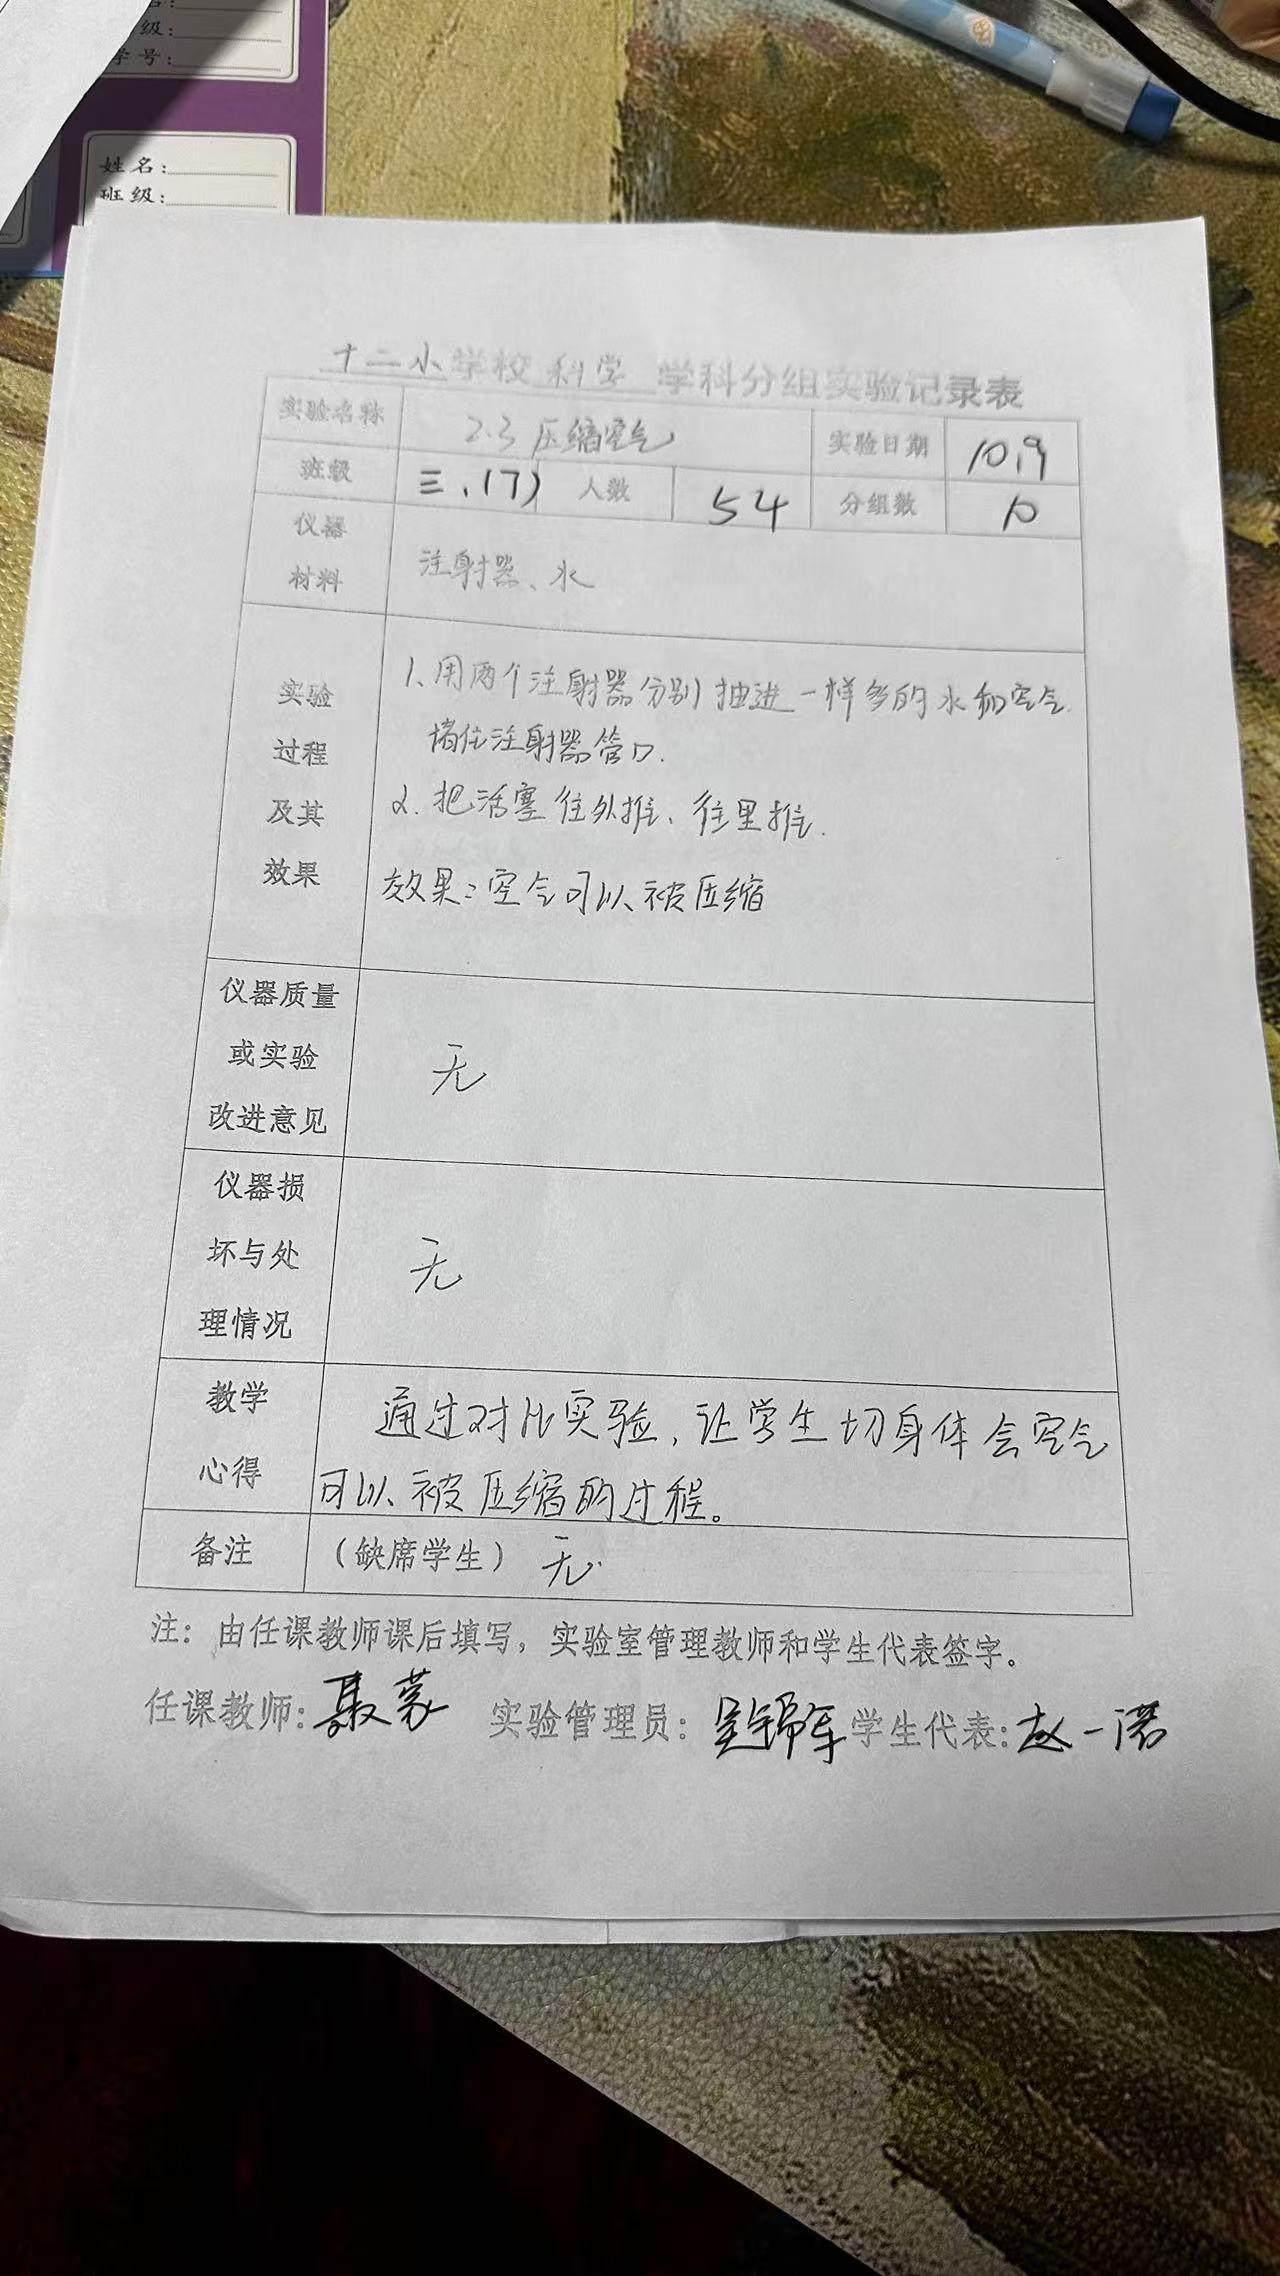 级：
学号：
姓名：
班级：
十二小学校 科学 学科分组实验记录表
实验名称 2.3 压缩空气 实验日期 10.9
班级 三.(7) 人数 54 分组数 10
仪器
材料
注射器、水
实验
过程
及其
效果
1、用两个注射器分别抽进一样多的水和空气
堵住注射器管口.
2. 把活塞往外推、往里推.
效果：空气可以被压缩
仪器质量
或实验
改进意见
无
仪器损
坏与处
理情况
无
教学
心得
通过对比实验，让学生切身体会空气
可以被压缩的过程。
备注 （缺席学生） 无
注：由任课教师课后填写，实验室管理教师和学生代表签字。
任课教师: 聂蒙 实验管理员: 学生代表: 赵一诺